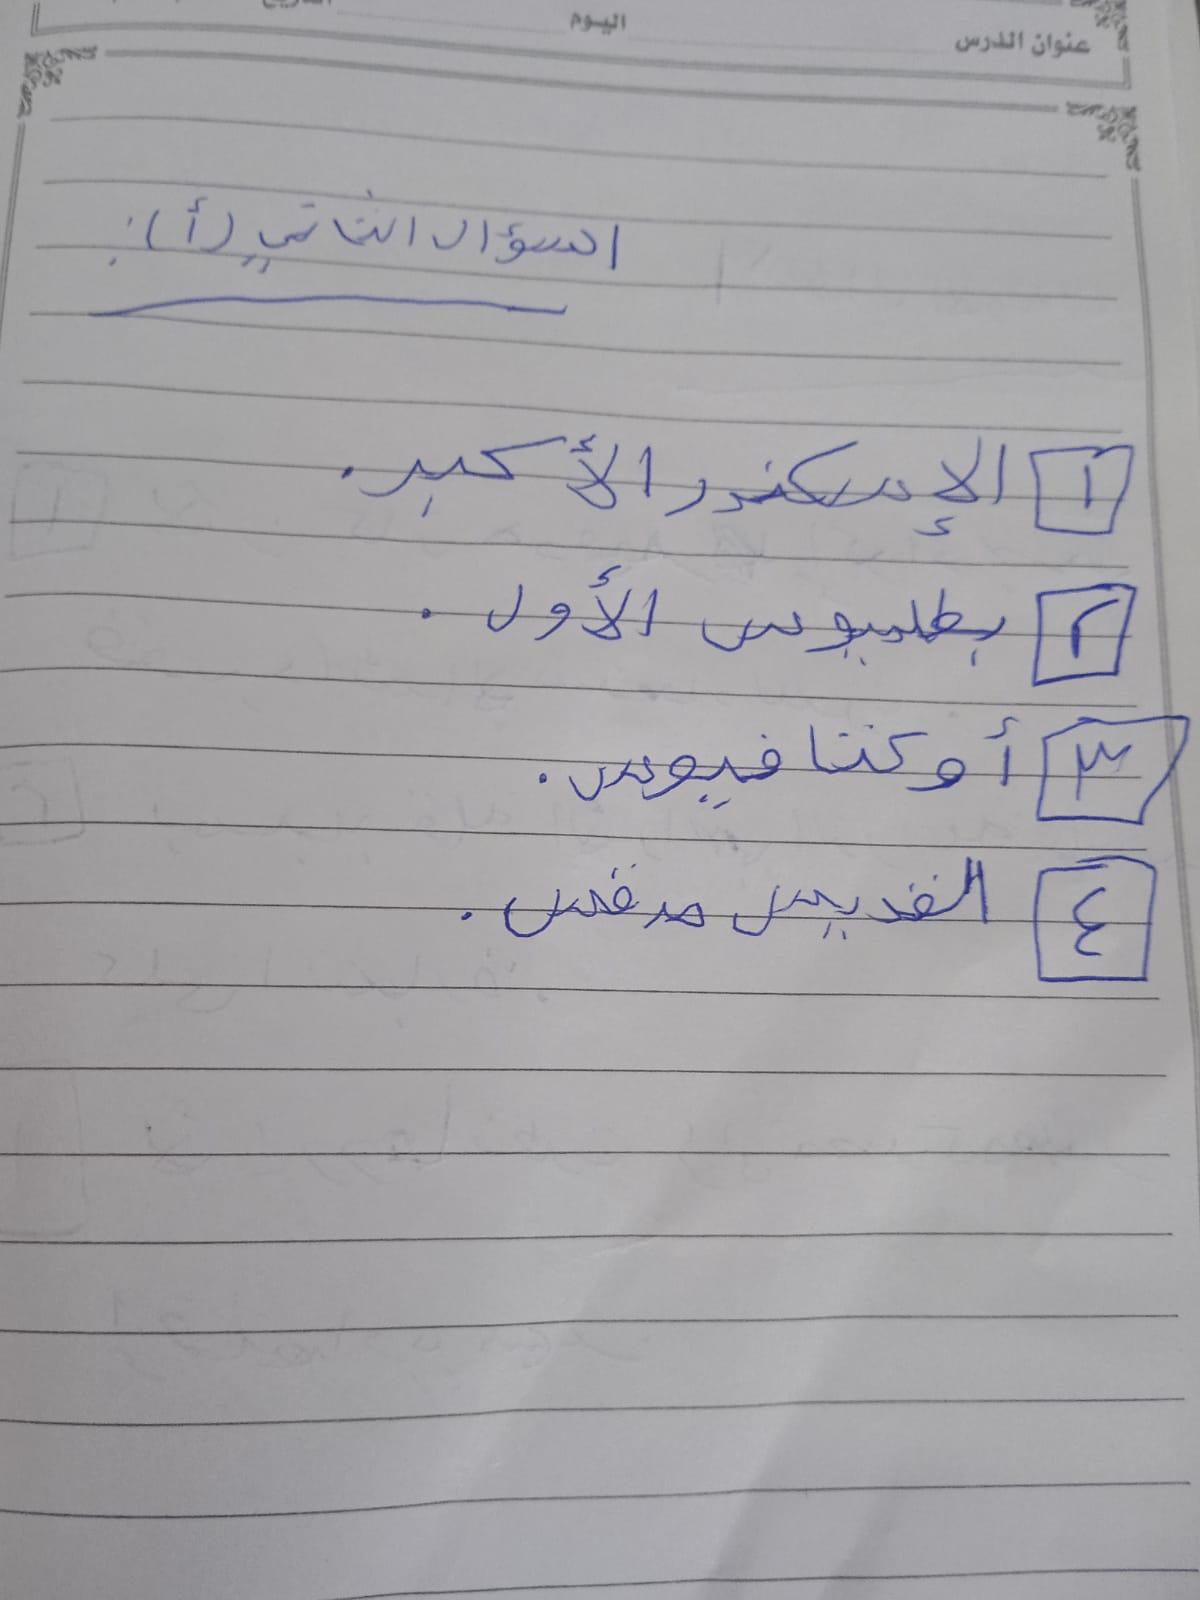 اليوم
عنوان الدرس
السؤال الثاني (أ):
١ الإسكندر الأكبر.
٢ بطلميوس الأول.
٣ أوكتافيوس.
٤ القديس مرقس.